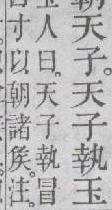 天子。天子執玉
人曰。天子執冒
寸以朝諸矦。注